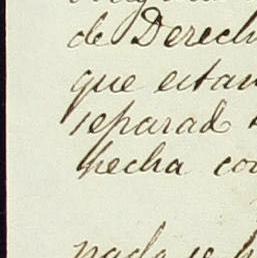 de Derech
que estan
separad
hecha co
nada se h